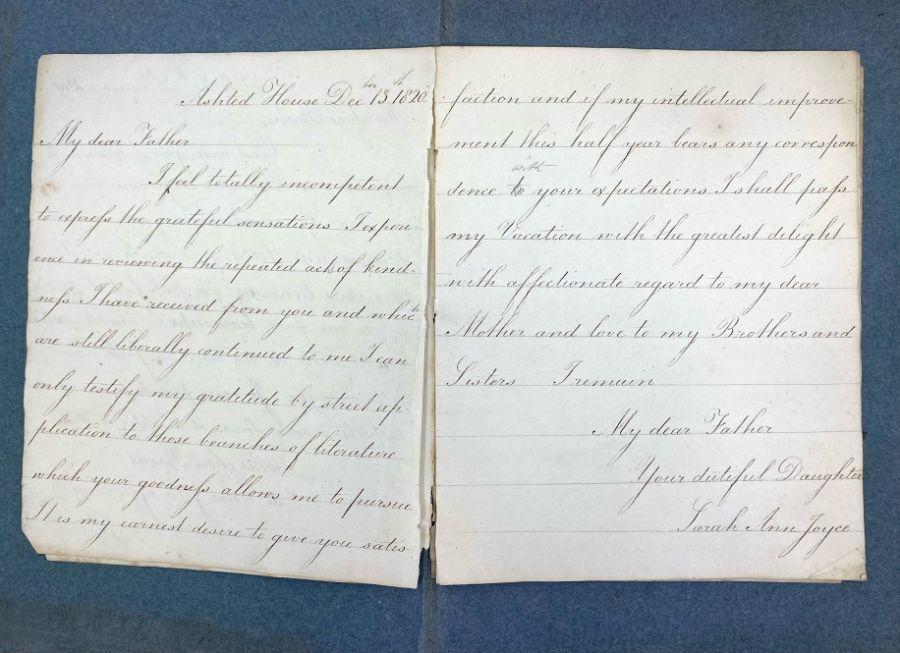 Ashted House Dec.ber 13th 1820
My dear Father
I feel totally incompetent
to express the grateful sensations I experi-
ence in reviewing the repeated acts of kind-
ness I have received from you and which
are still liberally continued to me I can
only testify my gratitude by strict ap-
plication to those branches of literature
which your goodness allows me to pursue
It is my earnest desire to give you satis-
faction and if my intellectual improve-
ment this half year bears any correspon
with
dence to your expectations I shall pass
my Vacation with the greatest delight
with affectionate regard to my dear
Mother and love to my Brothers and
Sisters I remain
My dear Father
Your dutiful Daughter
Sarah Ann Joyce